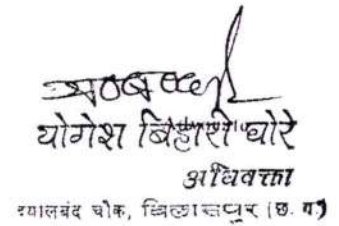 योगेश बिहारी बोरे
अधिवक्ता
दयालबंद चौक, बिलासपुर (छ. ग.)